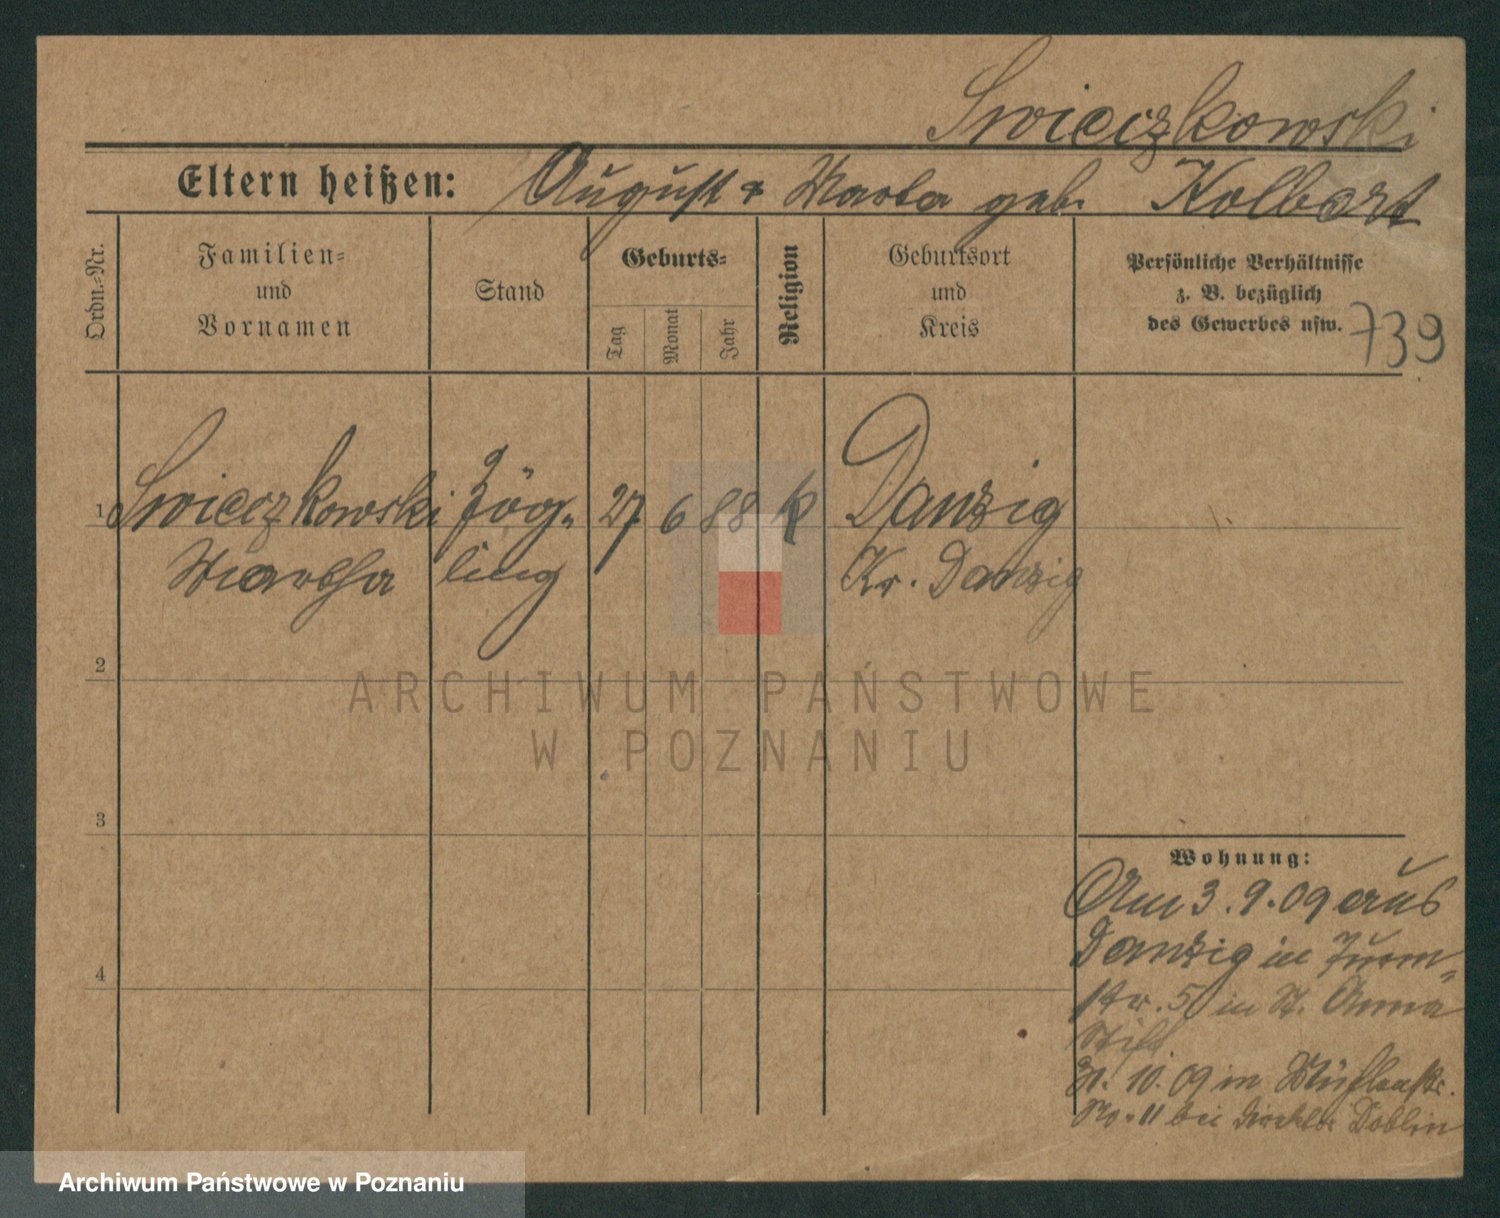 Swieczkowski
Eltern heißen: August & Marta geb. Kolbert
Ordn.-Nr.
Familien- und Vornamen
Stand
Geburts-
Tag
Monat
Jahr
Religion
Geburtsort und Kreis
Persönliche Verhältnisse
z. B. bezüglich
des Gewerbes usw.
739
1 Swieczkowski Zög- 27 6 88 k Danzig
Martha ling Kr. Danzig
2
3
4
ARCHIWUM PAŃSTWOWE
W POZNANIU
Wohnung:
Am 3.9.09 aus
Danzig in Turm-
str. 5 in St. Anna
Stift
10.09 in Mühlenstr.
No. 11 bei Doblin
Archiwum Państwowe w Poznaniu